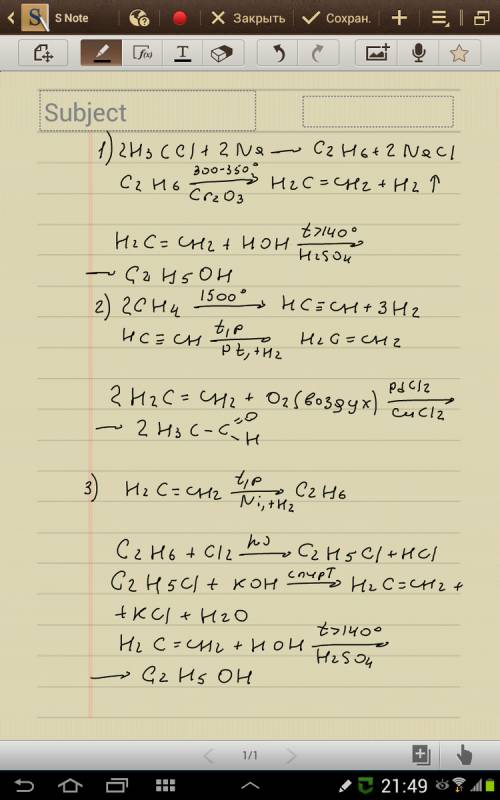 S Note
Закрыть
Сохран.
Subject
1) 2H3CCl + 2Na → C2H6 + 2NaCl
C2H6 300-350° Cr2O3 → H2C=CH2 + H2↑
H2C=CH2 + HOH t>140° H2SO4
→ C2H5OH
2) 2CH4 1500° → HC≡CH + 3H2
HC≡CH t,p Pt,+H2 → H2C=CH2
2H2C=CH2 + O2(воздух) PdCl2 CuCl2 →
→ 2H3C-C=O -H
3) H2C=CH2 t,p Ni,+H2 → C2H6
C2H6 + Cl2 hν → C2H5Cl + HCl
C2H5Cl + KOH спирт → H2C=CH2 +
+KCl + H2O
H2C=CH2 + HOH t>140° H2SO4
→ C2H5OH
1/1
21:49